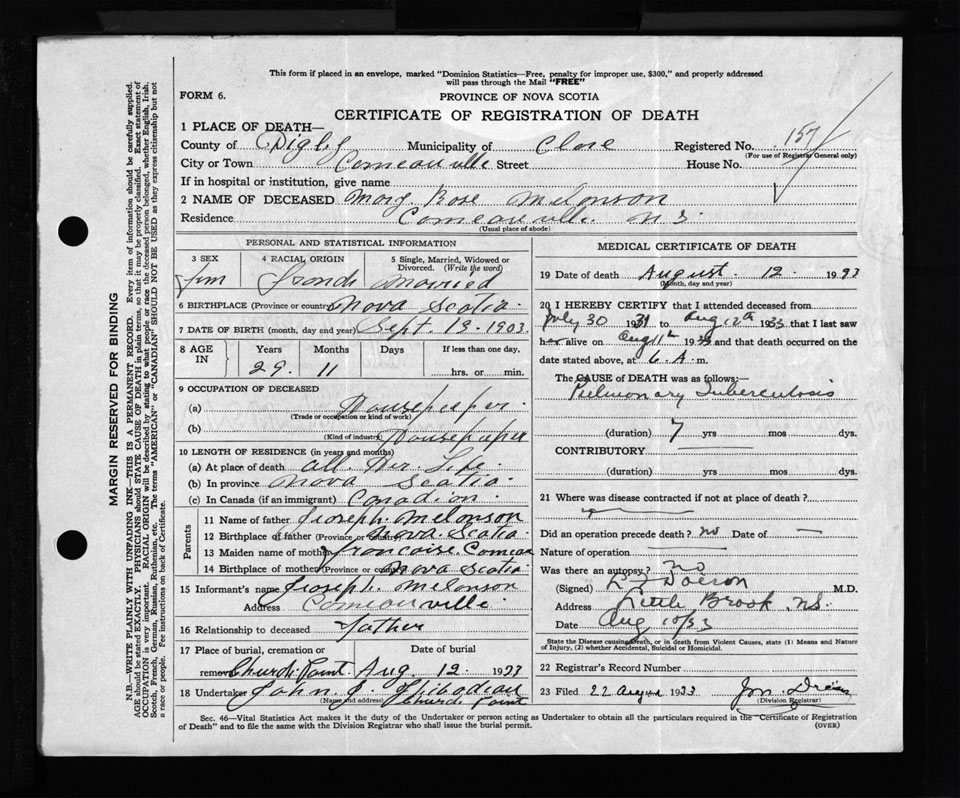 This form if placed in an envelope, marked "Dominion Statistics—Free, penalty for improper use, $300," and properly addressed
will pass through the Mail "FREE"
FORM 6.
PROVINCE OF NOVA SCOTIA
CERTIFICATE OF REGISTRATION OF DEATH
1 PLACE OF DEATH—
County of Digby Municipality of Clare Registered No. 157
(For use of Registrar General only)
City or Town Comeauville Street House No.
If in hospital or institution, give name
2 NAME OF DECEASED Mary Rose Melonson
Residence Comeauville N S.
(Usual place of abode)
PERSONAL AND STATISTICAL INFORMATION
3 SEX 4 RACIAL ORIGIN 5 Single, Married, Widowed or
Divorced. (Write the word)
fem Married
6 BIRTHPLACE (Province or country) Nova Scotia
7 DATE OF BIRTH (month, day and year) Sept. 13. 1903
8 AGE IN Years Months Days If less than one day,
29. 11 hrs. or min.
9 OCCUPATION OF DECEASED
(a) Housekeeper.
(Trade or occupation or kind of work)
(b) Housekeeper
(Kind of industry)
10 LENGTH OF RESIDENCE (in years and months)
(a) At place of death all Her Life
(b) In province Nova Scotia
(c) In Canada (if an immigrant) Canadian.
Parents
11 Name of father Joseph Melonson
12 Birthplace of father (Province or country) Nova Scotia
13 Maiden name of mother Francoise Comeau
14 Birthplace of mother (Province or country) Nova Scotia
15 Informant's name Joseph Melonson
Address Comeauville
16 Relationship to deceased Father
17 Place of burial, cremation or Date of burial
removal Church Point Aug 12. 1933
18 Undertaker John J. Thibodeau
(Name and address) Church Point
MEDICAL CERTIFICATE OF DEATH
19 Date of death August. 12. 1933
(Month, day and year)
20 I HEREBY CERTIFY that I attended deceased from
July 30 1931 to Aug 12th 1933 that I last saw
her alive on Aug 11th 1933 and that death occurred on the
date stated above, at 6. A. m.
The CAUSE OF DEATH was as follows:—
Pulmonary Tuberculosis
(duration) 7 yrs mos dys.
CONTRIBUTORY
(duration) yrs mos dys.
21 Where was disease contracted if not at place of death?
Did an operation precede death? no Date of
Nature of operation
Was there an autopsy? no
(Signed) M.D.
Address Little Brook N.S.
Date Aug
State the Disease causing Death, or in death from Violent Causes, state (1) Means and Nature
of Injury, (2) whether Accidental, Suicidal or Homicidal.
22 Registrar's Record Number
23 Filed 22 August 1933
(Division Registrar)
Sec. 46—Vital Statistics Act makes it the duty of the Undertaker or person acting as Undertaker to obtain all the particulars required in the "Certificate of Registration
of Death" and to file the same with the Division Registrar who shall issue the burial permit.
(OVER)
MARGIN RESERVED FOR BINDING
N.B.—WRITE PLAINLY WITH UNFADING INK—THIS IS A PERMANENT RECORD. Every item of information should be carefully supplied.
AGE should be stated EXACTLY. PHYSICIANS should STATE CAUSE OF DEATH in plain terms, so that it may be properly classified. Exact statement of
OCCUPATION is very important. RACIAL ORIGIN will be described by stating to what people or race the deceased person belonged, whether English, Irish,
Scotch, French, German, Russian, Ruthenian, etc. The terms "AMERICAN" or "CANADIAN" SHOULD NOT BE USED as they express citizenship but not
a race or people. Fee instructions on back of Certificate.